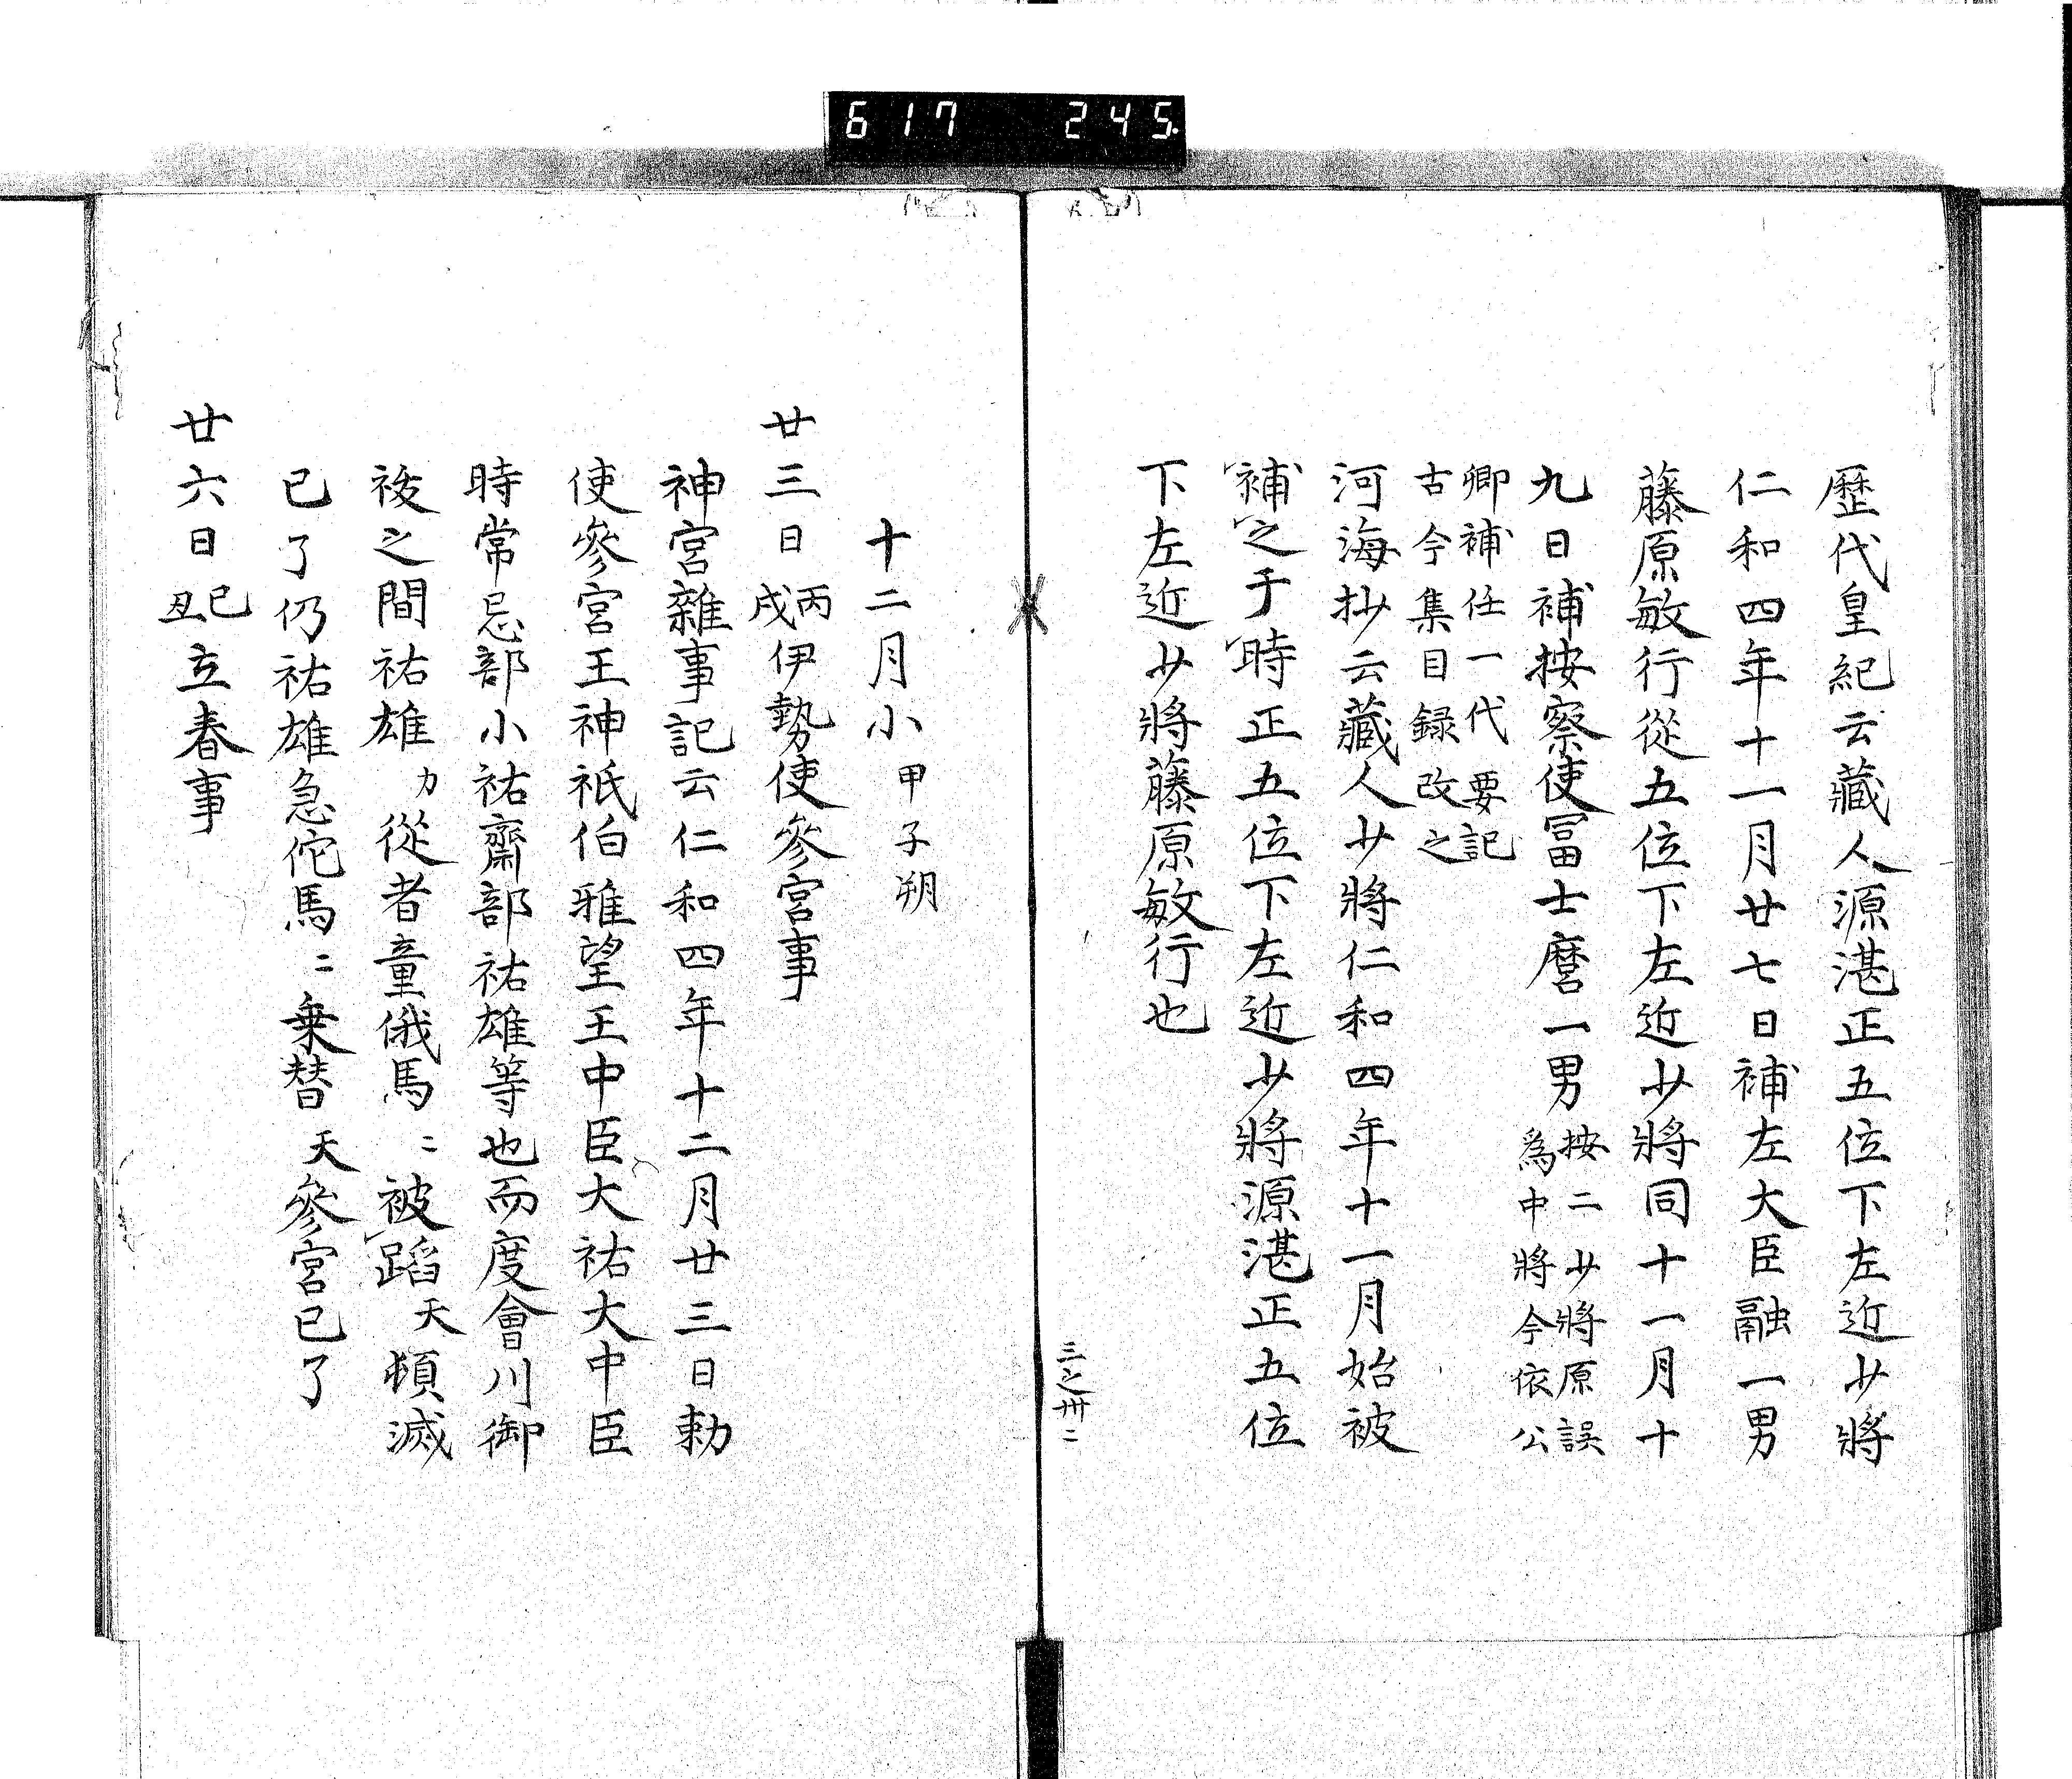 617 245.
歷代皇紀云藏人源湛正五位下左近少將
仁和四年十一月廿七日補左大臣融一男
藤原敏行從五位下左近少將同十一月十
九日補按察使冨士麿一男
按二少將原誤
爲中將今依公
卿補任一代要記
古今集目録改之
河海抄云藏人少將仁和四年十一月始被
補之于時正五位下左近少將源湛正五位
下左近少將藤原敏行也
三之卅二
十二月小甲子朔
廿三日丙戌伊勢使參宮事
神宮雜事記云仁和四年十二月廿三日勅
使參宮王神祇伯雅望王中臣大祐大中臣
時常忌部小祐齋部祐雄等也而度會川御
祓之間祐雄力從者童俄馬ニ被蹈天頓滅
已了仍祐雄急佗馬ニ乗替天參宮已了
廿六日己丑立春事